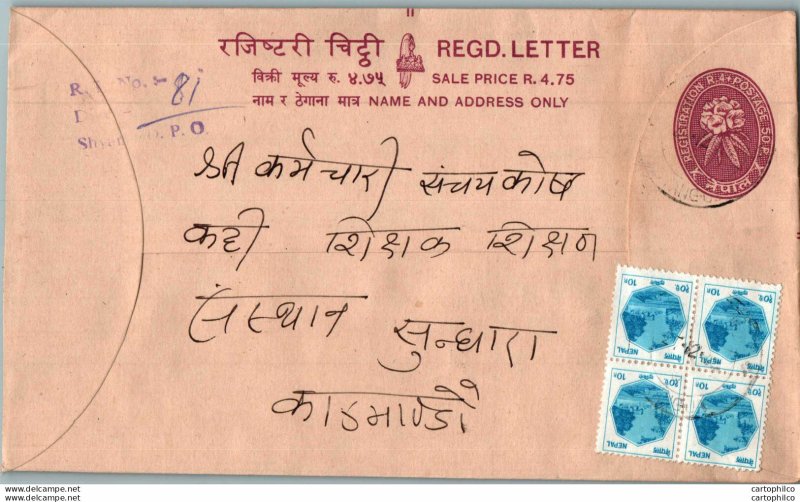 रजिष्टरी चिट्ठी REGD. LETTER
विक्री मूल्य रु. ४.७५ SALE PRICE R. 4.75
नाम र ठेगाना मात्र NAME AND ADDRESS ONLY
No. 81
P. O.
REGISTRATION R. 4 + POSTAGE 50 P.
नेपाल
श्री कर्मचारी संचयकोष
शिक्षक शिक्षण
संस्थान सुन्धारा
काठमाण्डौ
१०पै. 10P
नेपाल NEPAL
१०पै. 10P
नेपाल NEPAL
१०पै. 10P
नेपाल NEPAL
१०पै. 10P
नेपाल NEPAL
www.cartophilco.com
cartophilco
cartophilco